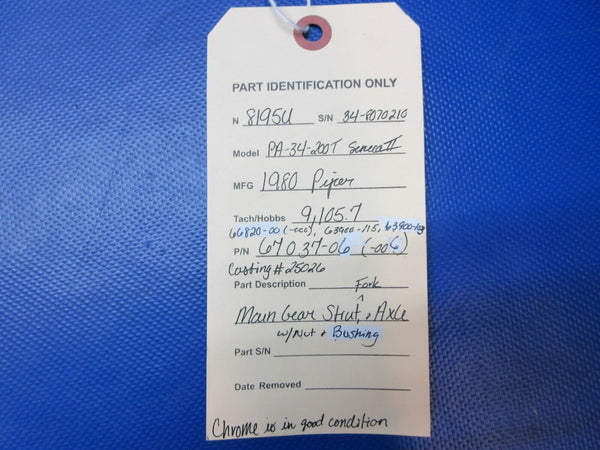 PART IDENTIFICATION ONLY
N 8195U S/N 34-8070210
Model PA-34-200T Seneca II
MFG 1980 Piper
Tach/Hobbs 9,105.7
66820-00 (-000), 63900-115, 63900-
P/N 67037-06 (-006)
Casting # 25026
Part Description Fork
Main Gear Strut, + Axle
w/Nut + Bushing
Part S/N
Date Removed
Chrome is in good condition